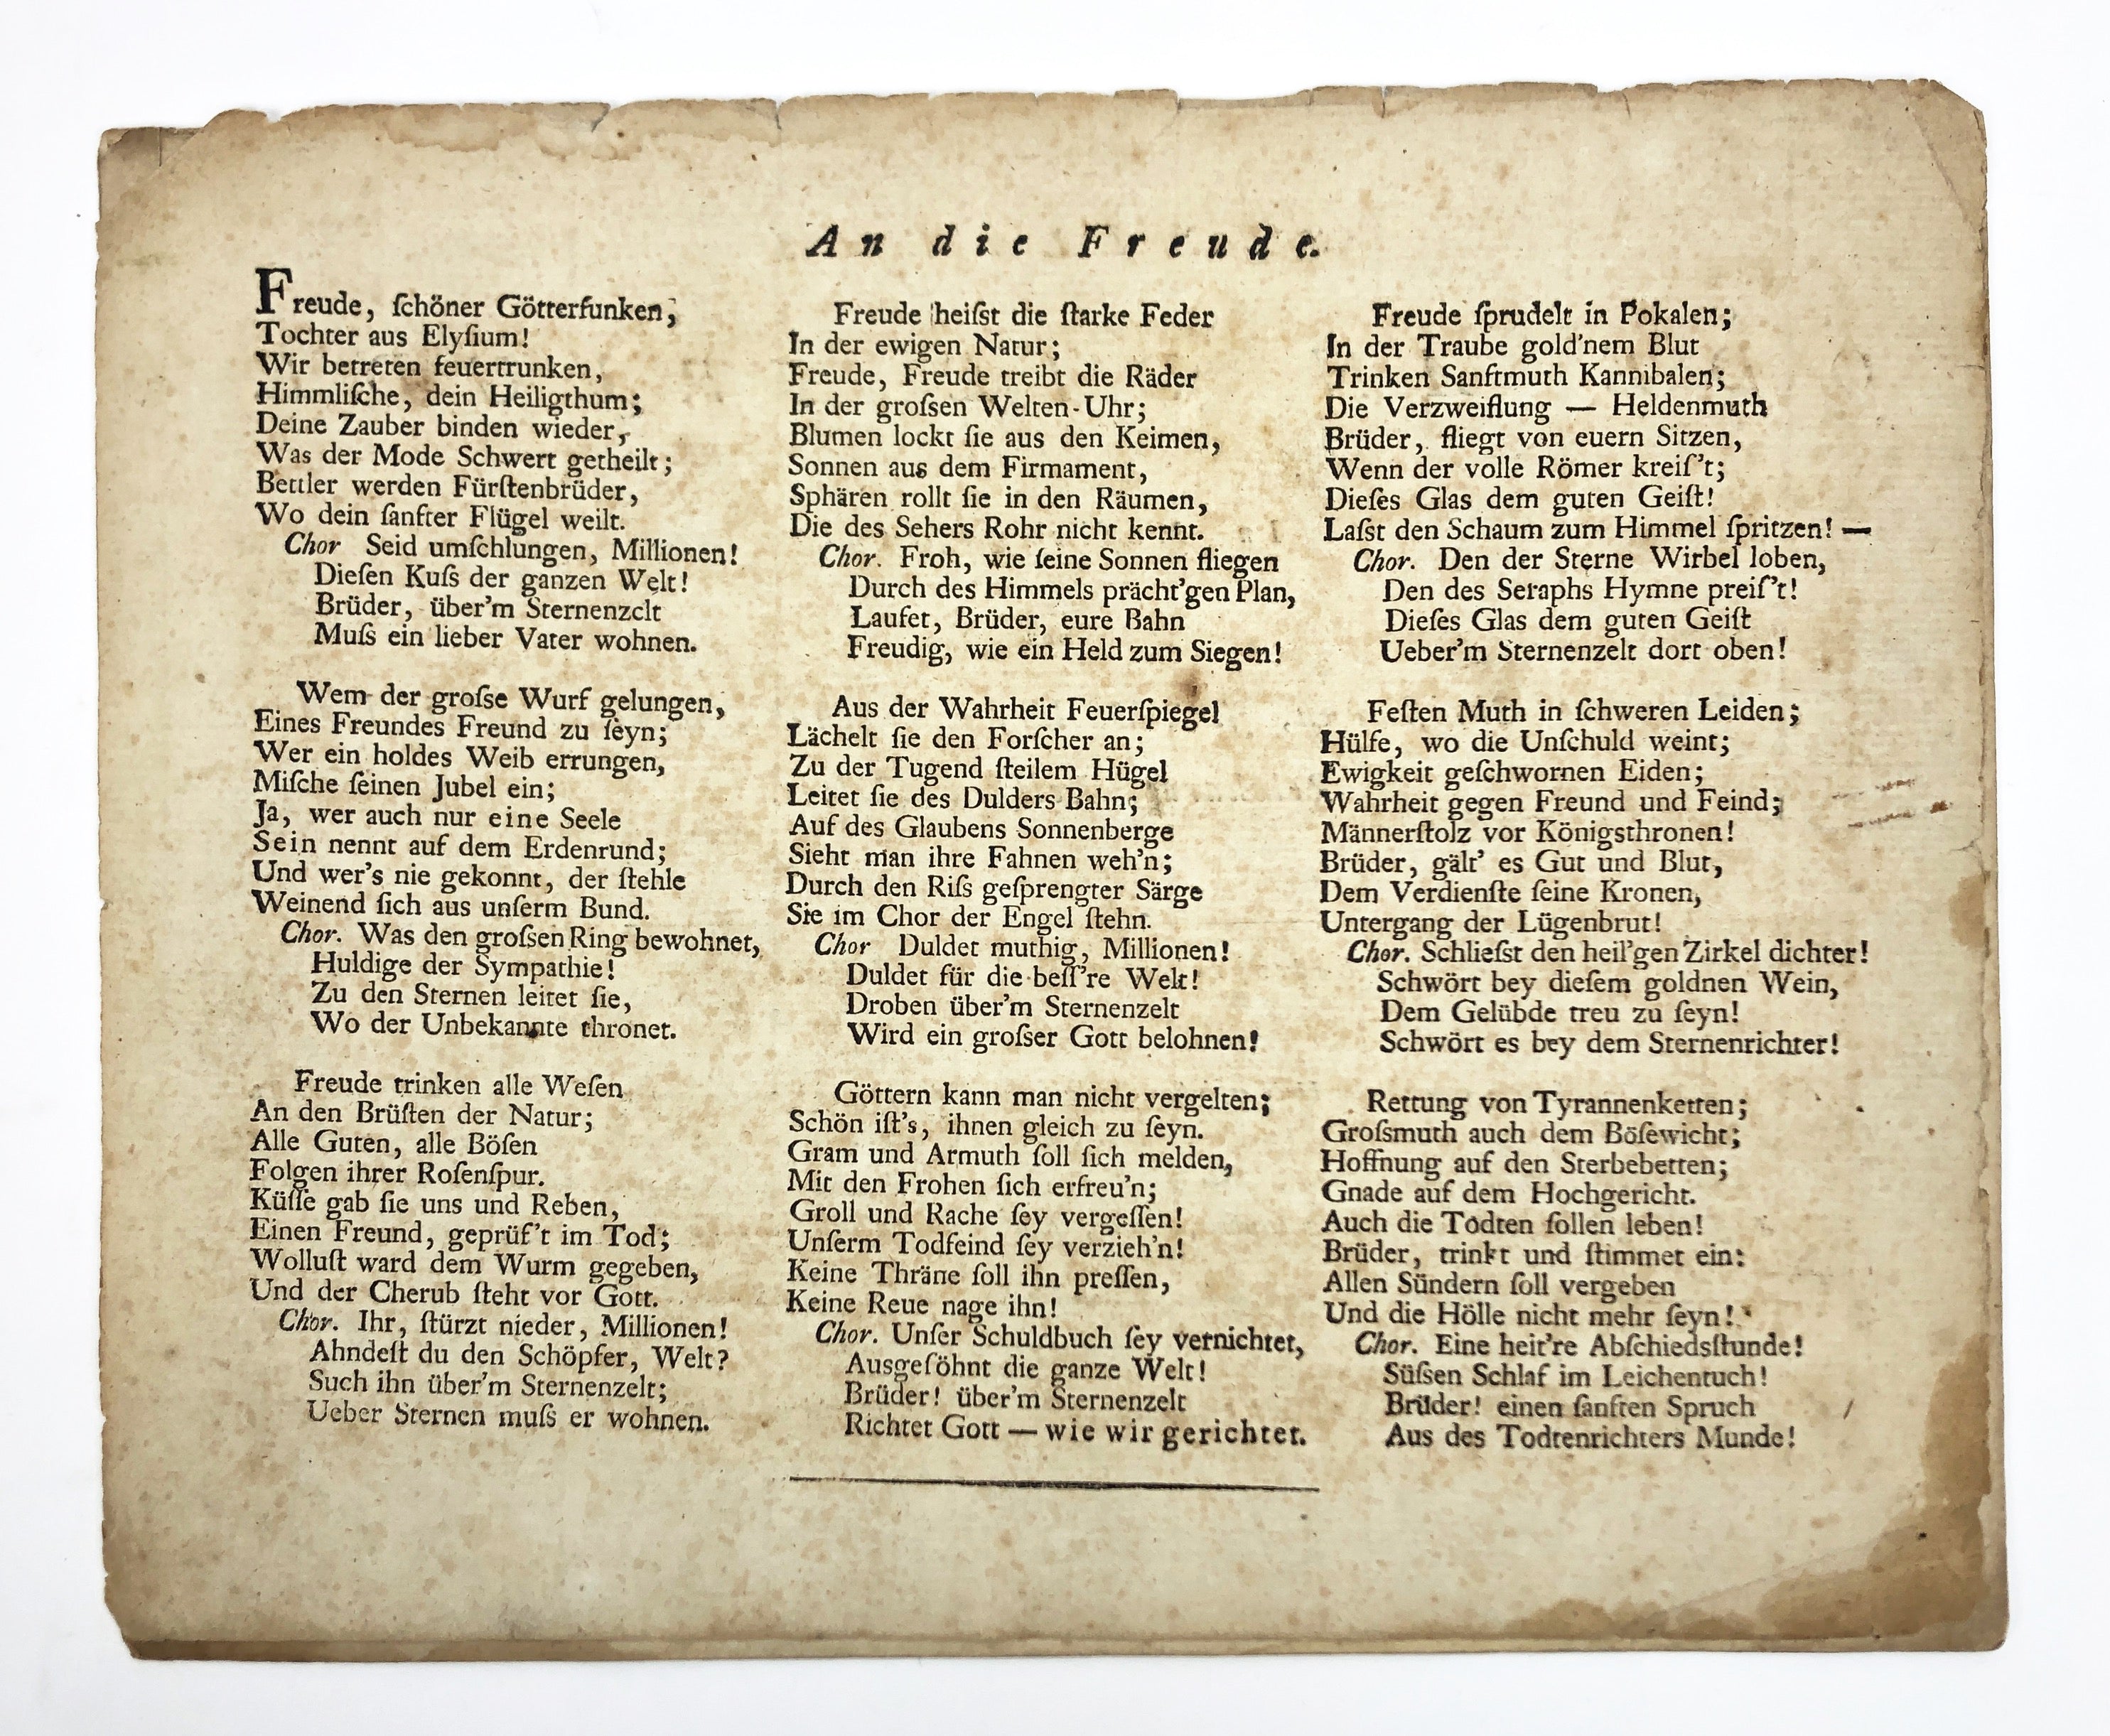 An die Freude.
Freude, ſchöner Götterfunken,
Tochter aus Elyſium!
Wir betreten feuertrunken,
Himmliſche, dein Heiligthum;
Deine Zauber binden wieder,
Was der Mode Schwert getheilt;
Bettler werden Fürſtenbrüder,
Wo dein ſanfter Flügel weilt.
Chor Seid umſchlungen, Millionen!
Dieſen Kuſs der ganzen Welt!
Brüder, über'm Sternenzelt
Muſs ein lieber Vater wohnen.
Wem der groſse Wurf gelungen,
Eines Freundes Freund zu ſeyn;
Wer ein holdes Weib errungen,
Miſche ſeinen Jubel ein;
Ja, wer auch nur eine Seele
Sein nennt auf dem Erdenrund;
Und wer's nie gekonnt, der ſtehle
Weinend ſich aus unſerm Bund.
Chor. Was den groſsen Ring bewohnet,
Huldige der Sympathie!
Zu den Sternen leitet ſie,
Wo der Unbekannte thronet.
Freude trinken alle Weſen
An den Brüſten der Natur;
Alle Guten, alle Böſen
Folgen ihrer Roſenſpur.
Küſſe gab ſie uns und Reben,
Einen Freund, geprüf't im Tod;
Wolluſt ward dem Wurm gegeben,
Und der Cherub ſteht vor Gott.
Chor. Ihr, ſtürzt nieder, Millionen!
Ahndeſt du den Schöpfer, Welt?
Such ihn über'm Sternenzelt;
Ueber Sternen muſs er wohnen.
Freude heiſst die ſtarke Feder
In der ewigen Natur;
Freude, Freude treibt die Räder
In der groſsen Welten-Uhr;
Blumen lockt ſie aus den Keimen,
Sonnen aus dem Firmament,
Sphären rollt ſie in den Räumen,
Die des Sehers Rohr nicht kennt.
Chor. Froh, wie ſeine Sonnen fliegen
Durch des Himmels prächt'gen Plan,
Laufet, Brüder, eure Bahn
Freudig, wie ein Held zum Siegen!
Aus der Wahrheit Feuerſpiegel
Lächelt ſie den Forſcher an;
Zu der Tugend ſteilem Hügel
Leitet ſie des Dulders Bahn;
Auf des Glaubens Sonnenberge
Sieht man ihre Fahnen weh'n;
Durch den Riſs geſprengter Särge
Sie im Chor der Engel ſtehn.
Chor Duldet muthig, Millionen!
Duldet für die beſſ're Welt!
Droben über'm Sternenzelt
Wird ein groſser Gott belohnen!
Göttern kann man nicht vergelten;
Schön iſt's, ihnen gleich zu ſeyn.
Gram und Armuth ſoll ſich melden,
Mit den Frohen ſich erfreu'n;
Groll und Rache ſey vergeſſen!
Unſerm Todfeind ſey verzieh'n!
Keine Thräne ſoll ihn preſſen,
Keine Reue nage ihn!
Chor. Unſer Schuldbuch ſey vernichtet,
Ausgeſöhnt die ganze Welt!
Brüder! über'm Sternenzelt
Richtet Gott — wie wir gerichtet.
Freude ſprudelt in Pokalen;
In der Traube gold'nem Blut
Trinken Sanftmuth Kannibalen;
Die Verzweiflung — Heldenmuth
Brüder, fliegt von euern Sitzen,
Wenn der volle Römer kreiſ't;
Dieſes Glas dem guten Geiſt!
Laſst den Schaum zum Himmel ſpritzen! —
Chor. Den der Sterne Wirbel loben,
Den des Seraphs Hymne preiſ't!
Dieſes Glas dem guten Geiſt
Ueber'm Sternenzelt dort oben!
Feſten Muth in ſchweren Leiden;
Hülfe, wo die Unſchuld weint;
Ewigkeit geſchwornen Eiden;
Wahrheit gegen Freund und Feind;
Männerſtolz vor Königsthronen!
Brüder, gält' es Gut und Blut,
Dem Verdienſte ſeine Kronen,
Untergang der Lügenbrut!
Chor. Schlieſst den heil'gen Zirkel dichter!
Schwört bey dieſem goldnen Wein,
Dem Gelübde treu zu ſeyn!
Schwört es bey dem Sternenrichter!
Rettung von Tyrannenketten;
Groſsmuth auch dem Böſewicht;
Hoffnung auf den Sterbebetten;
Gnade auf dem Hochgericht.
Auch die Todten ſollen leben!
Brüder, trinkt und ſtimmet ein:
Allen Sündern ſoll vergeben
Und die Hölle nicht mehr ſeyn!
Chor. Eine heit're Abſchiedsſtunde!
Süſsen Schlaf im Leichentuch!
Brüder! einen ſanften Spruch
Aus des Todtenrichters Munde!